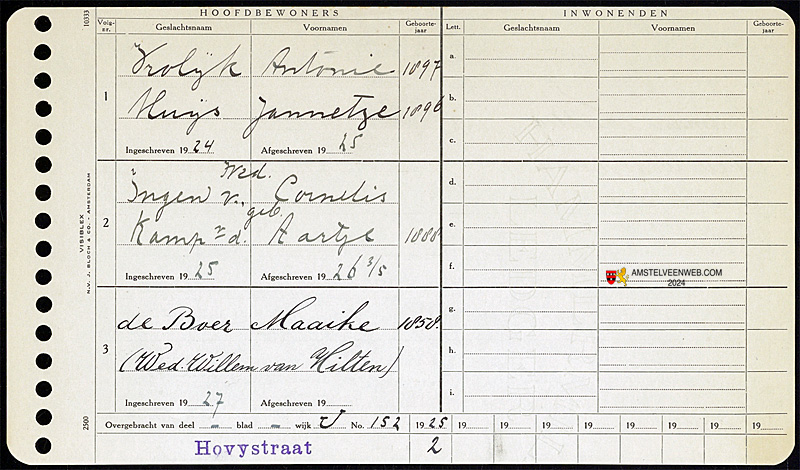 HOOFDBEWONERS INWONENDEN
Volg-nr. Geslachtsnaam Voornamen Geboorte-jaar Lett. Geslachtsnaam Voornamen Geboorte-jaar
10333
1
Vrolijk Antonie 1897
Huijs Jannetze 1896
Ingeschreven 1924 Afgeschreven 1925
a.
b.
c.
2
Wed.
Ingen v. Cornelis
geb.
Kamp v. d. Aartje 1888
Ingeschreven 1925 Afgeschreven 1926 3/5
d.
e.
f.
AMSTELVEENWEB.COM
2024
VISIBLEX
N.V. J. BLOCH & CO. - AMSTERDAM
3
de Boer Maaike 1858.
(Wed. Willem van Hilten)
Ingeschreven 1927 Afgeschreven 19
g.
h.
i.
2500
Overgebracht van deel – blad – wijk U No. 152 1925 19 19 19 19 19 19 19 19
Hovystraat 2